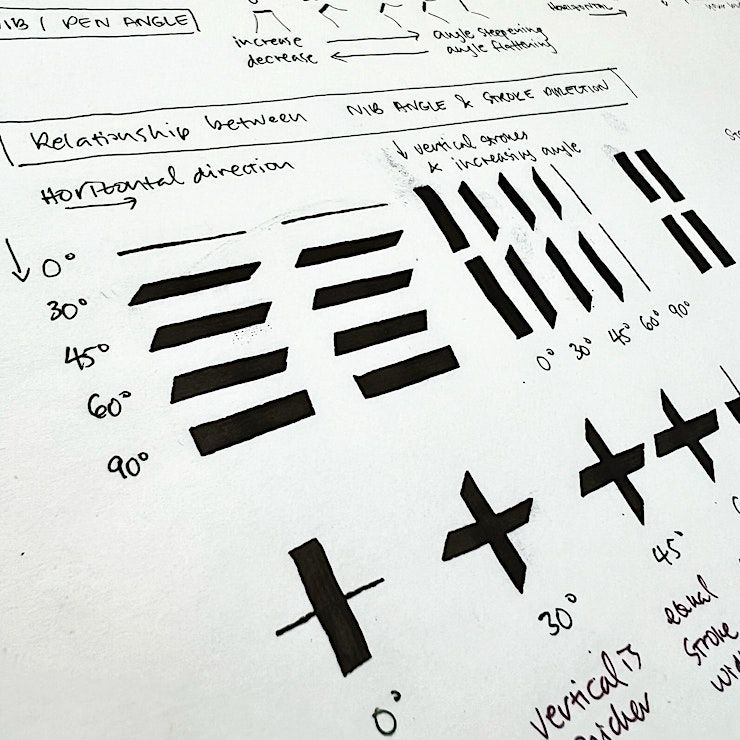 NIB / PEN ANGLE
increase
decrease
angle steepening
angle flattening
HORIZONTAL
Relationship between NIB ANGLE & STROKE DIRECTION
Horizontal direction
vertical strokes
& increasing angle
0°
30°
45°
60°
90°
0° 30° 45° 60° 90°
0°
30°
vertical is
45°
equal
stroke